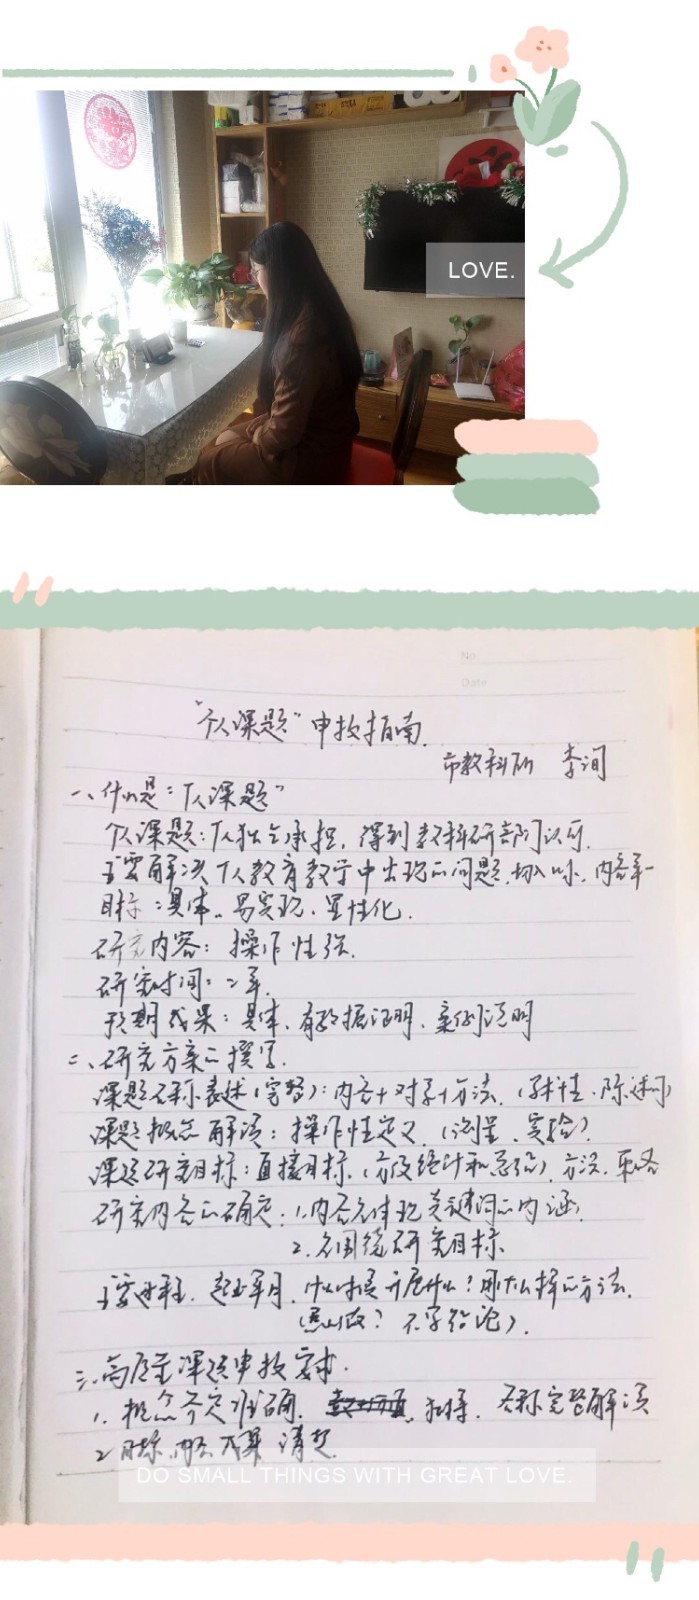 LOVE.
No
Date
"个人课题"申报指南.
市教科研 李询
一、什么是:"个人课题"
个人课题:个人独立承担,得到教科研部门认可.
主要解决个人教育教学中出现的问题,切入口小,内容单一
目标:具体、易实现、显性化.
研究内容:操作性强.
研究时间:二年.
预期成果:具体、有数据证明、案例说明
二、研究方案的撰写.
课题名称表述(完整):内容+对象+方法.(学术性、陈述句)
课题概念解读:操作性定义.(测量、实验)
课题研究目标:直接目标.(方法、策略
研究内容的确定:1.内容先体现关键词的内涵.
2.为围绕研究目标
主要过程.起止年月.什么时候开展什么?用什么样的方法.
不写结论).
三.高质量课题申报要求.
1.概念界定准确. 名称完整解读
2.目标、内容、成果清楚.
DO SMALL THINGS WITH GREAT LOVE.